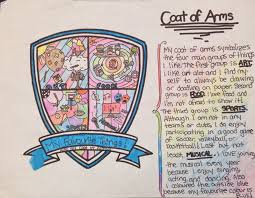 Coat of Arms
My coat of arms symbolizes
the four main groups of things
I like. The first group is ART.
I like art alot and I find my
self to always be drawing
or doodling on paper. Second
group is FOOD. I love food and
I'm not afraid to show it!
the third group is SPORTS.
Although I am not in any
teams or clubs, I do enjoy
participating in a good game
of soccer, volleyball, or
football! Last but, not
least, MUSICAL. I love joining
the musical every
because I enjoy singing
acting, and dancing. Also
I coloured the outside blue
because my favourite color is
My Favourite Things!